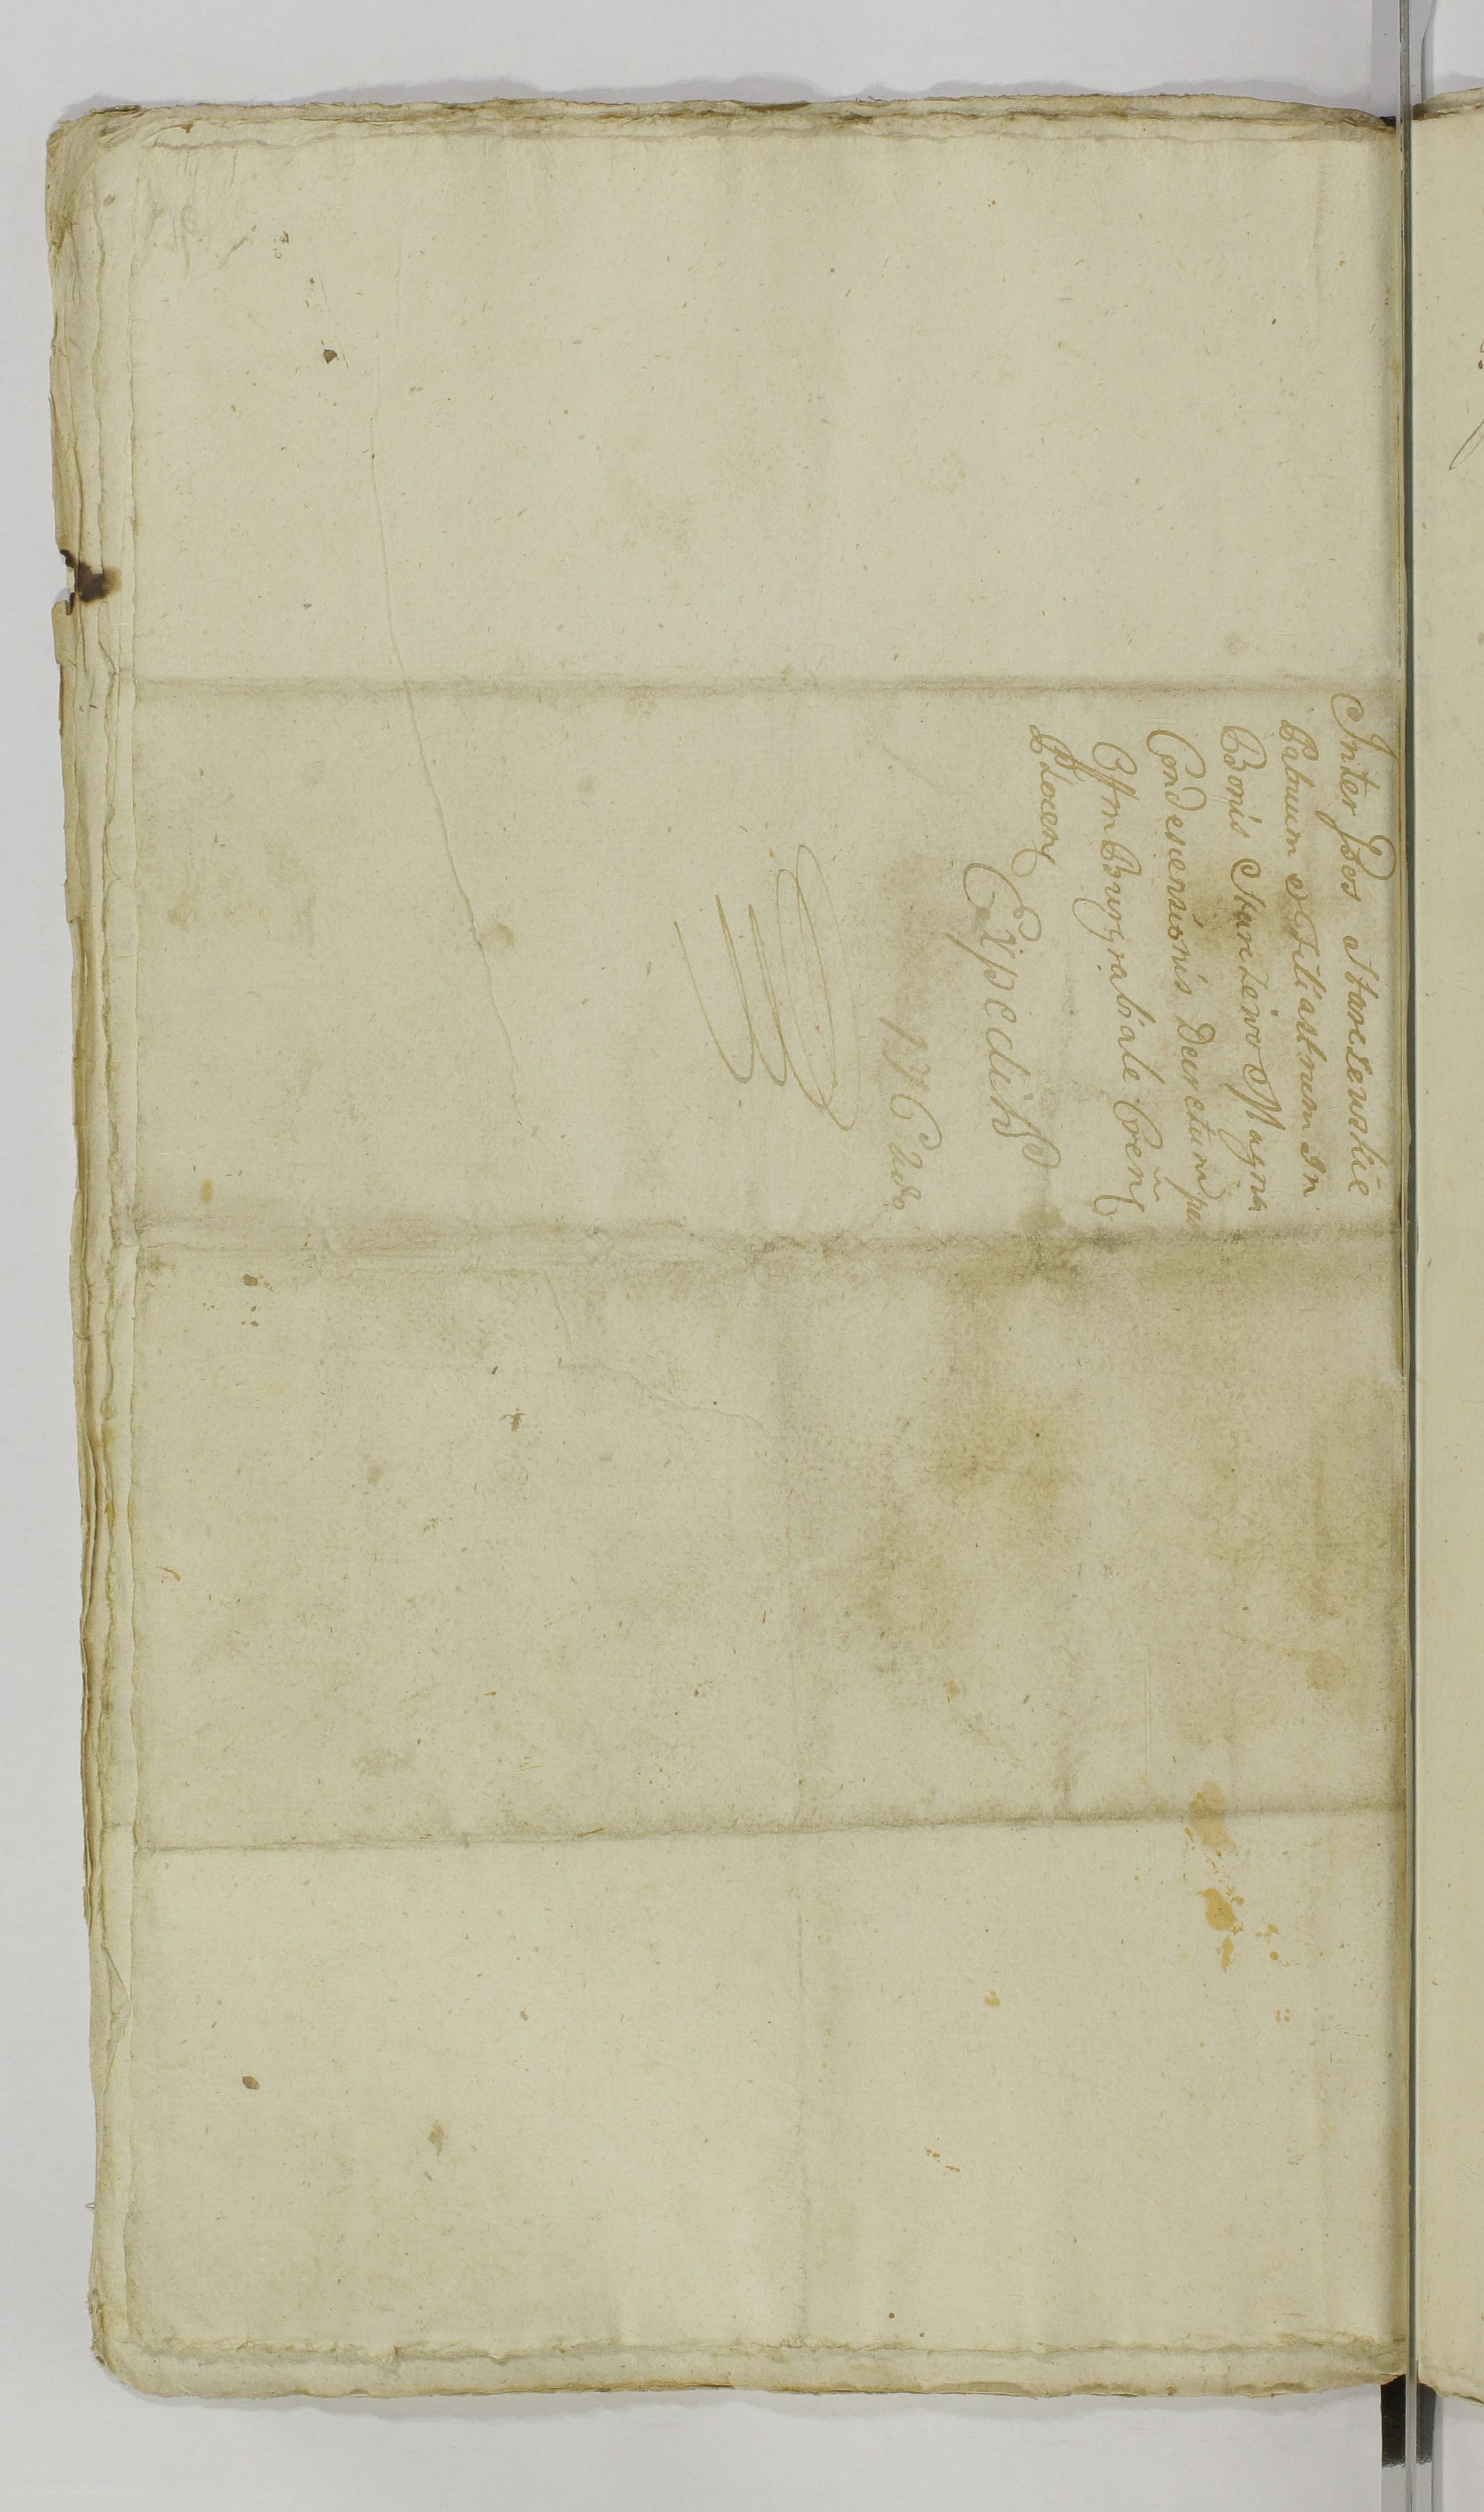 Inter Gsos Starczewskie
Patruum et Filiastrum In
Bonis Starczewo Magna
Condescensionis Decretum per
Offm Burgrabiale Cren
Plocen
Expedit